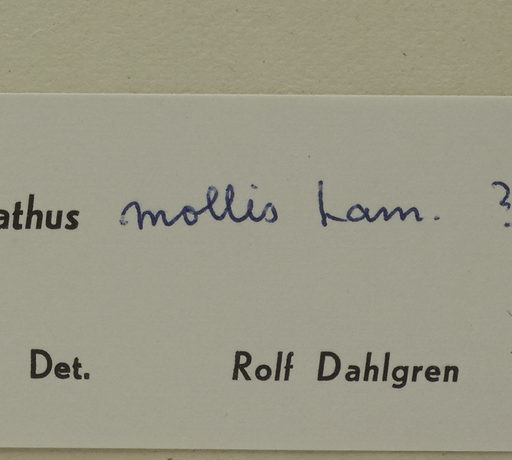 athus mollis Lam. ?
Det. Rolf Dahlgren